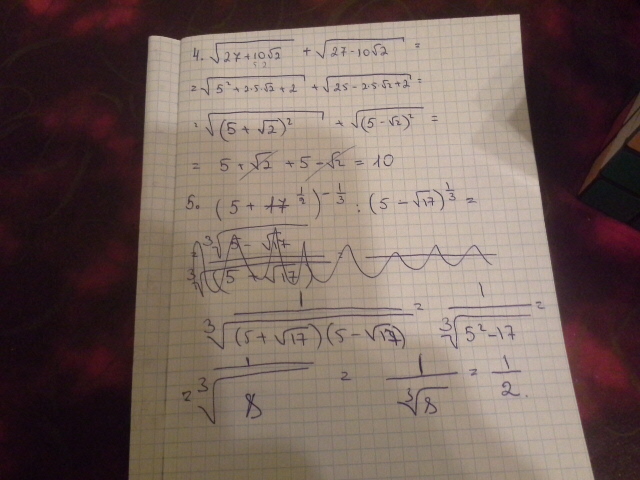 4. √(27+10√2) + √(27-10√2) =
= √(5² + 2·5·√2 + 2) + √(25 - 2·5·√2 + 2) =
= √((5 + √2)²) + √((5 - √2)²) =
= 5 + √2 + 5 - √2 = 10
5. (5 + 17^(1/2))^(-1/3) : (5 - √17)^(1/3) =
= ∛(5 - √17)
∛((5 + √17)
1/∛((5 + √17)(5 - √17)) = 1/∛(5² - 17) =
= ∛(1/8) = 1/∛8 = 1/2.